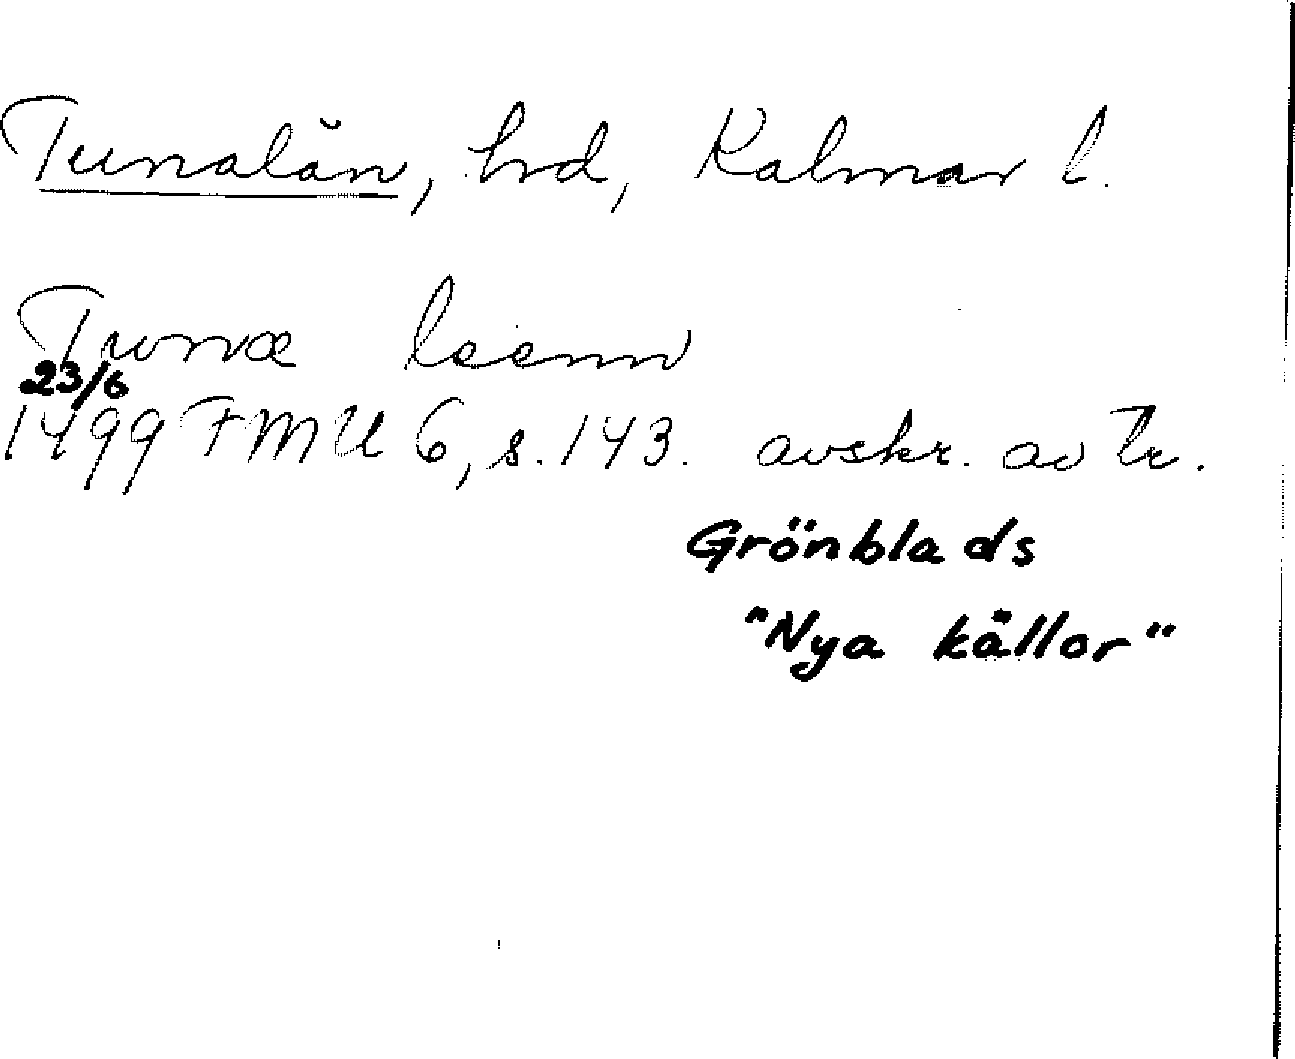 Tunalän, hrd, Kalmar l.
Twnæ leenn
23/6
1499 FMU 6, s. 143. avskr. av tr.
Grönblads
"Nya källor"